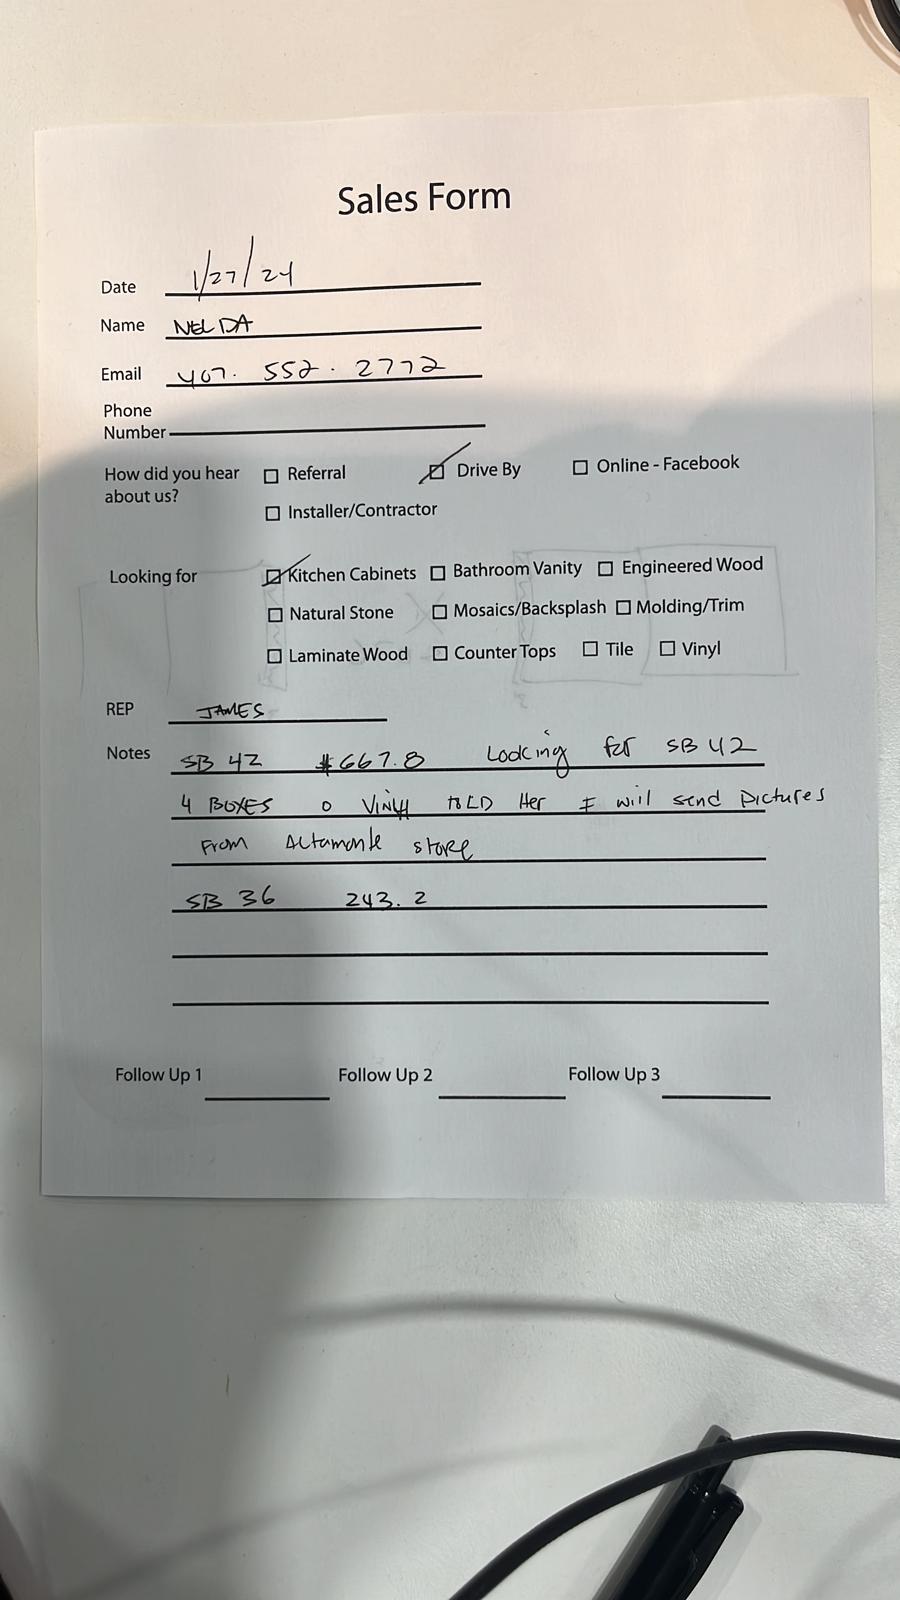 Sales Form
Date 1/27/24
Name NELDA
Email 407. 552. 2772
Phone
Number
How did you hear about us? Referral Drive By Online - Facebook
Installer/Contractor
Looking for Kitchen Cabinets Bathroom Vanity Engineered Wood
Natural Stone Mosaics/Backsplash Molding/Trim
Laminate Wood Counter Tops Tile Vinyl
REP JAMES
Notes SB 42 $667.8 Looking for SB 42
4 BOXES TOLD Her I will send Pictures
From Altamonte store
SB 36 243.2
Follow Up 1 Follow Up 2 Follow Up 3